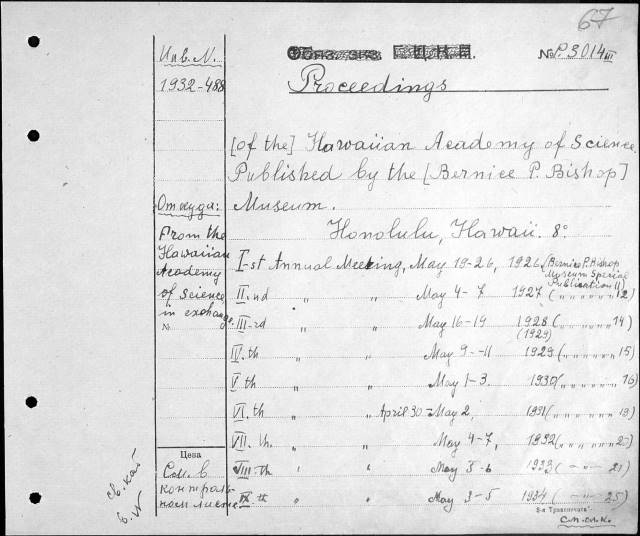 67
Инв. N.
1932-488
Обяз. экз. Г.Ц.К.П. № P.3014 III
Proceedings
[of the] Hawaiian Academy of Science.
Published by the [Bernice P. Bishop]
Museum.
Honolulu, Hawaii. 8º.
Откуда:
From the
Hawaiian
Academy
of Science,
in exchange.
№
I-st Annual Meeting, May 19-26, 1926 (Bernice P. Bishop
Museum Special
Publication 11)
II-nd " " May 4-7 1927 ( " " " " 12)
III-rd " " May 16-19 1928 ( " " " " 14)
(1929)
IV.th " " May 9-11 1929 ( " " " " 15)
V th " " May 1-3. 1930 ( " " " " 16)
VI. th " " April 30 - May 2, 1931 ( " " " " 19)
VII. th. " " May 4-7, 1932 ( " " " "
VIII-th " " May 5-6 1933 ( — " — 21)
IX-th " " May 3-5 1934 ( — " — 25)
Цена
См. в
контроль-
ном листе
См. л. к.